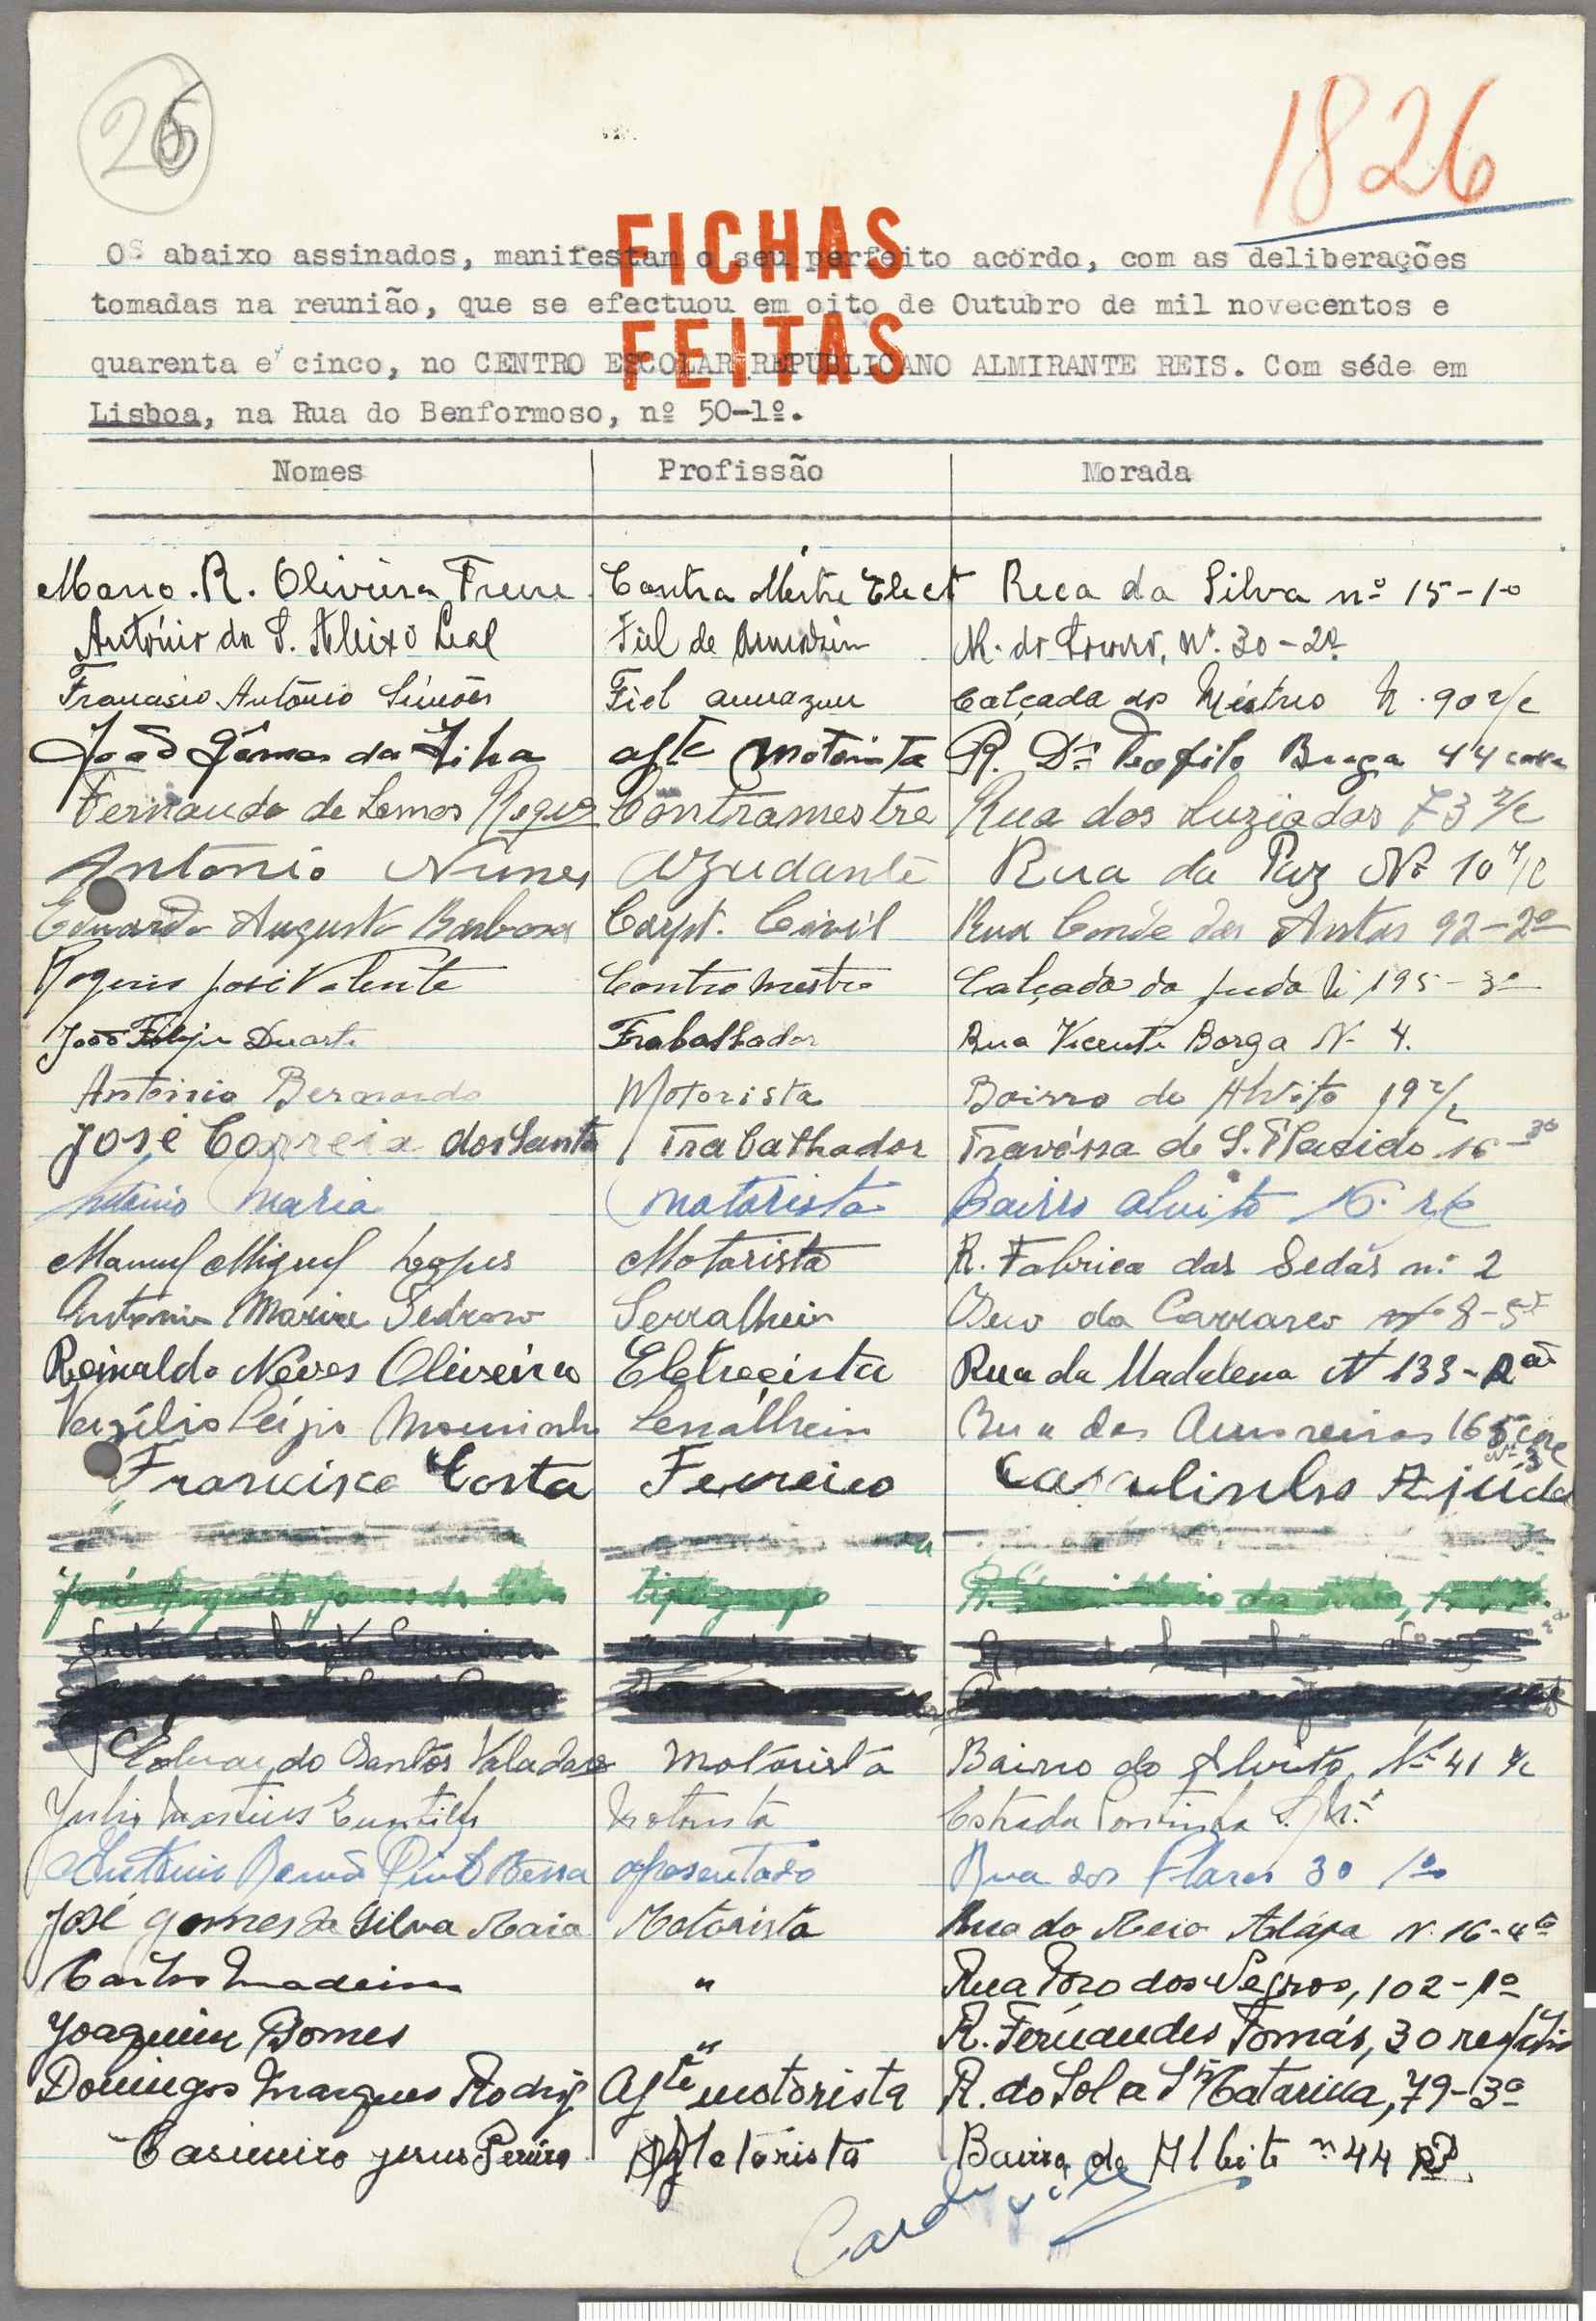 26
1826
FICHAS
FEITAS
Os abaixo assinados, manifestam o seu perfeito acôrdo, com as deliberações
tomadas na reunião, que se efectuou em oito de Outubro de mil novecentos e
quarenta e cinco, no CENTRO ESCOLAR REPUBLICANO ALMIRANTE REIS. Com séde em
Lisboa, na Rua do Benformoso, nº 50-1º.
Nomes Profissão Morada
Mario. R. Oliveira Freire Contra Mestre Elect Rua da Silva nº 15-1º
António da S. Aleixo Leal Fiel de Armazém Nº 30-2º
Francisco António Simões Fiel armazem Calçada do Mestres N. 90 r/c
João Gomes da Silva ajte Motorista R. Dr. Teofilo Braga 44 cave
Fernando de Lemos Contramestre Rua dos Luziadas 73 r/c
António Nunes Azudante Rua da Paz Nº 10 r/c
Eduardo Augusto Barbosa Carpt. Civil Rua Conde das Antas 92-2º
Rogerio José Valente Contra Mestre Calçada da Juda N 195-3º
João Filipe Duarte Trabalhador Rua Vicente Borga N- 4.
Antonio Bernardo Motorista Bairro do Alvito 19 r/c
José Correia dos Santos Trabalhador Travéssa de S. Plasido 16-3º
António Maria Motorista Bairro Alvito r/c
Manuel Miguel Lopes Motorista R. Fabrica das Sedas nº 2
Antonio Maria Pedroso Serralheiro Beco da Carrasco nº 8-
Reinaldo Neves Oliveira Eletrecista Rua da Madalena Nº 133-
Vergílio Serralheiro Rua das Amoreiras 165 cave
Francisco Costa Ferreiro Casalinho Ajuda Nº 3
José Augusto Gomes da Silva tipógrafo
Eduardo Santos Valadares Motorista Bairro do Alvito, Nº 41 r/c
Julio Martins Motorista Estrada
António Pinto Bessa aposentado Rua das Flores 30 1º
José Gomes da Silva Maia Motorista Rua do Meio Alápa N. 16-4º
Carlos Madeira " Rua Poço dos Negros, 102-1º
Joaquim Gomes " R. Fernandes Tomás, 30 res/chão
Domingos Marques Rodrig Ajte motorista R. do Sol a Stª Catarina, 79-3º
Casimiro Jesus Pereira Motorista Bairro do Albito nº 44